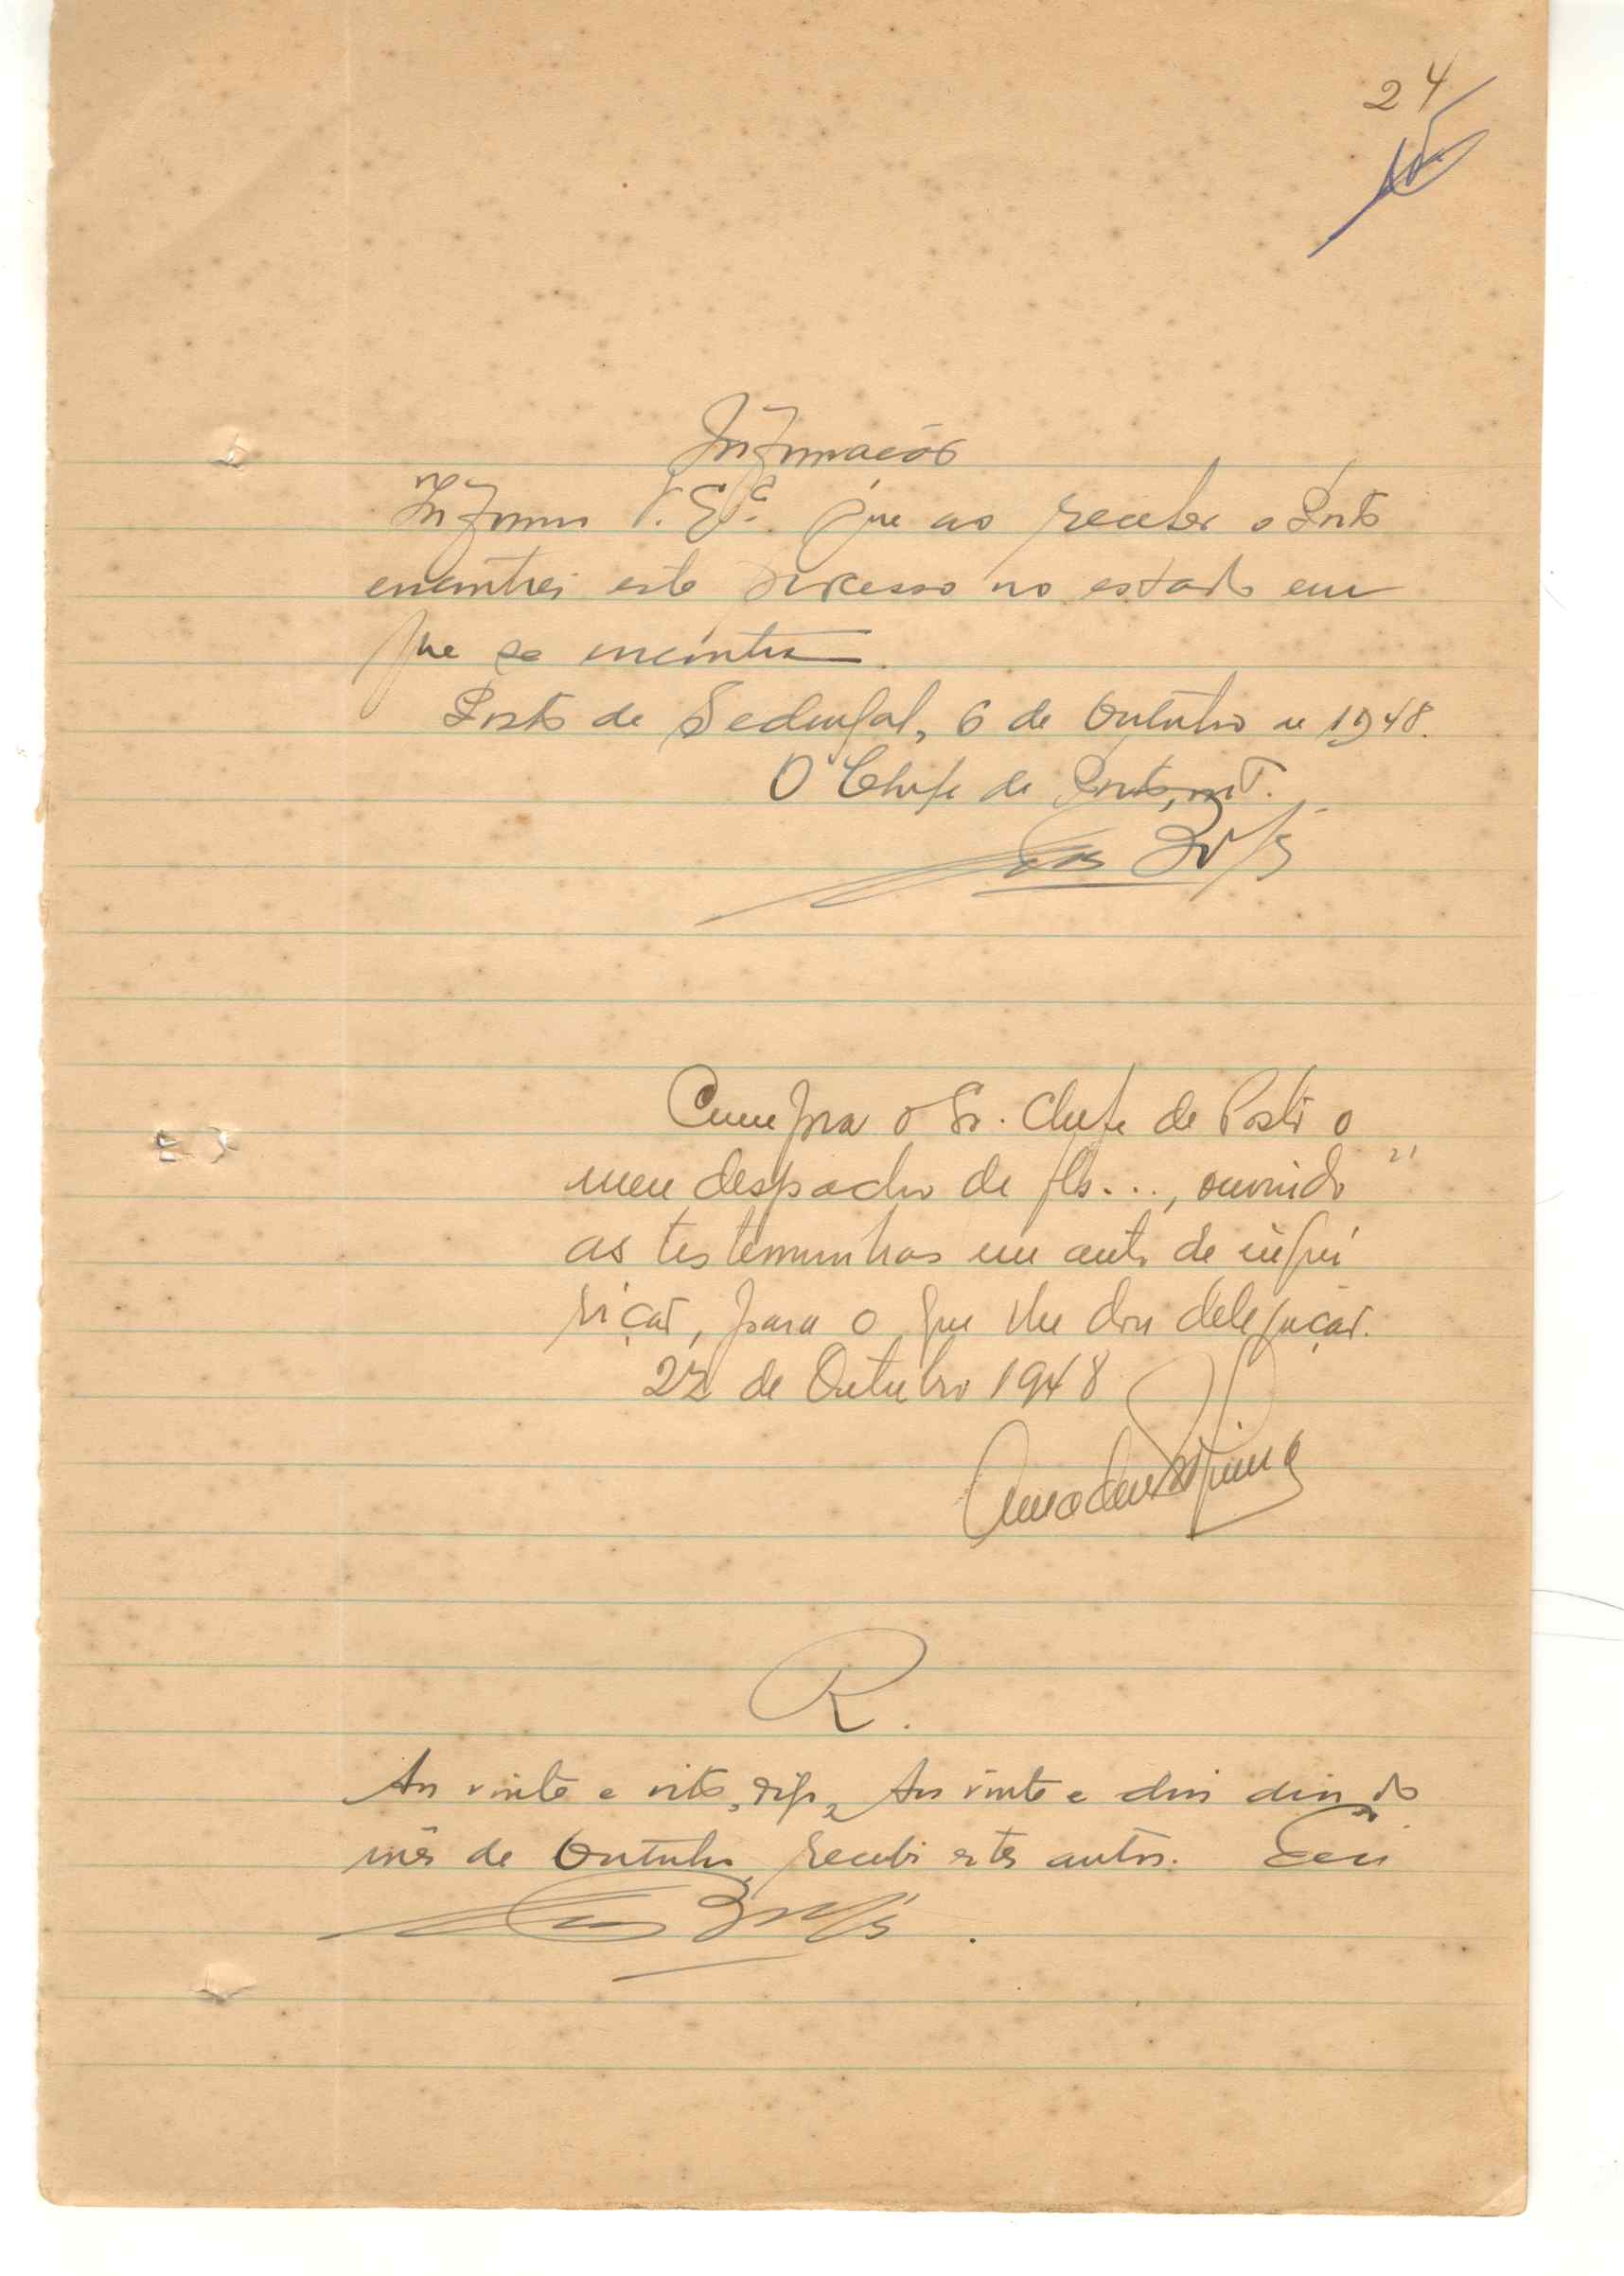 24
Informação
Informo V. Exª. que ao receber o Posto
encontrei este processo no estado em
que se encontra.
Posto de Sedengal, 6 de Outubro de 1948.
O Chefe de Posto, intº.
Cumpra o Sr. Chefe de Posto o
meu despacho de fls..., ouvindo 21
as testemunhas em auto de inqui
rição, para o que lhe dou delegação.
22 de Outubro 1948
R.
Aos vinte e oito, digo, Aos vinte e dois dias do
mês de Outubro, recebi estes autos. Eu